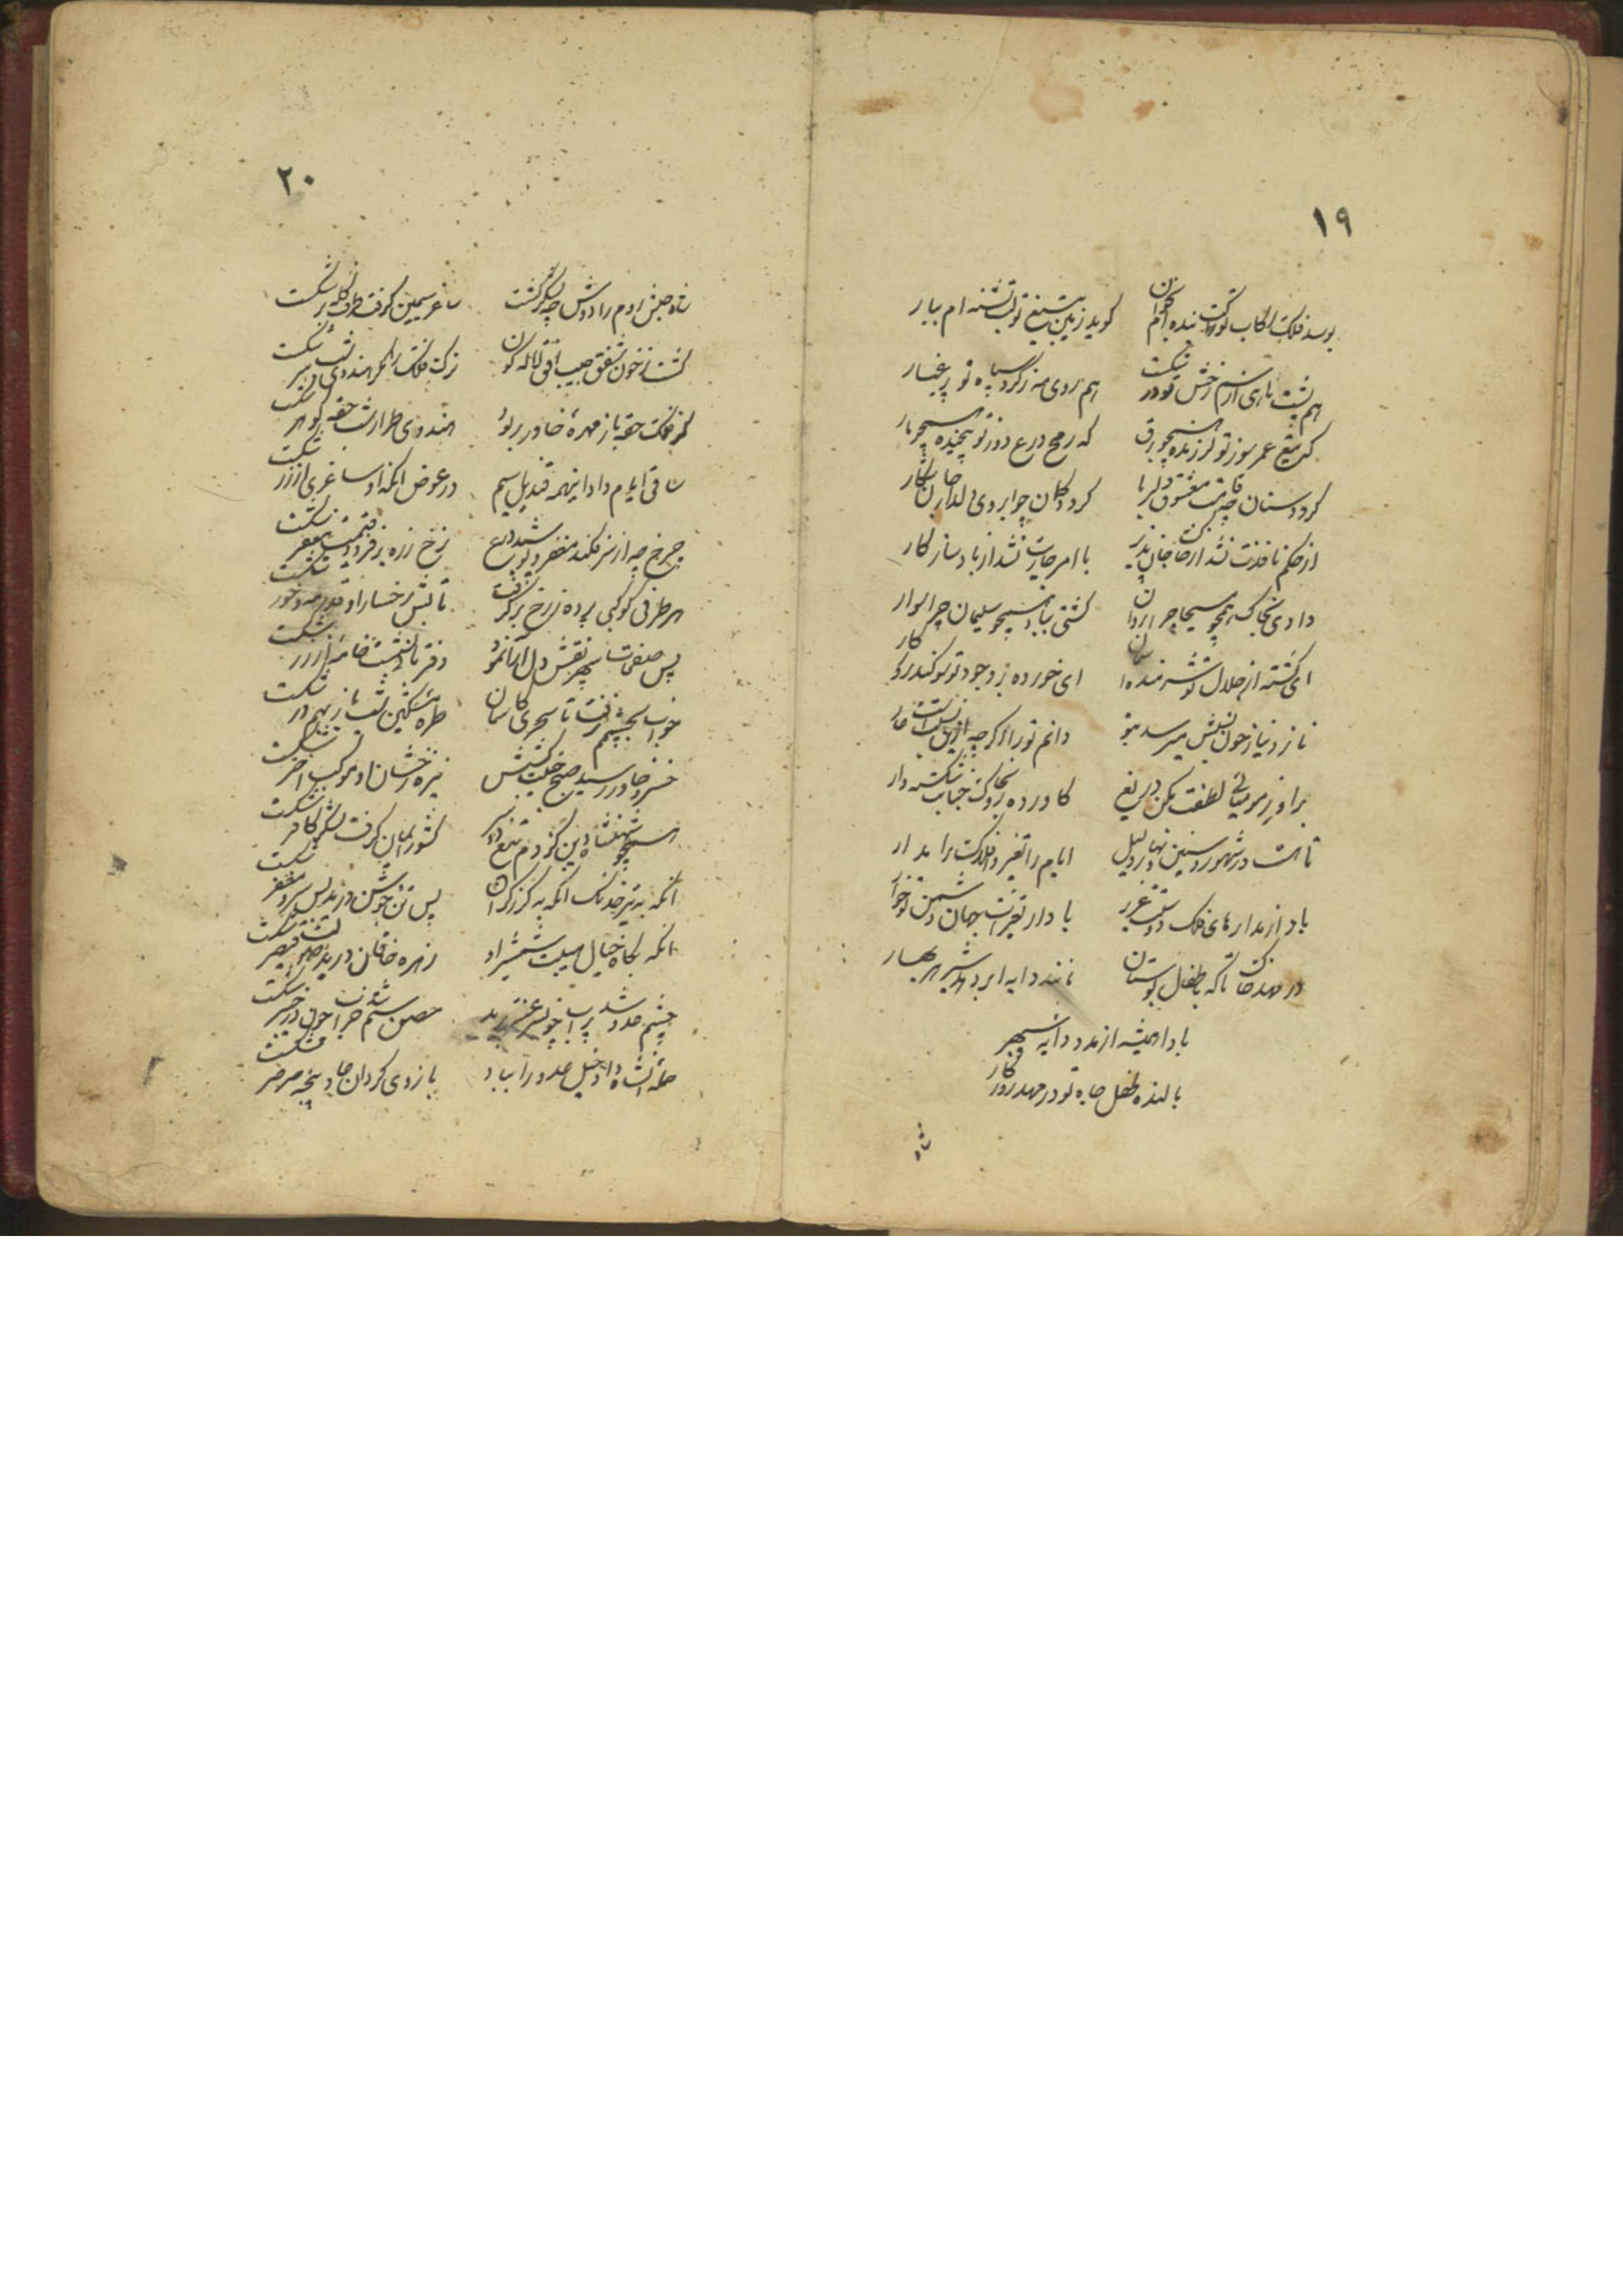 ۱۹
بوسد فلک رکاب تو کت بنده‌ام کران
گوید زمین بتیغ تو لب تشنه‌ام ببار
هم پشت ماهی از سم رخش تو در شکست
هم روی مه ز گرد سپاه تو پر غبار
که تیغ عمر سوز تو لرزنده همچو برق
که رمح درع دوز تو پیچنده همچو مار
گردد سنان چو قامت معشوق دلربا
گردد کمان چو ابروی دلدار جان شکار
از حکم نافذت نشد ار خاک جان پذیر
با امر جاریت نشد ار باد سازگار
دادی بخاک همچو مسیحا چرا روان
گشتی بباد همچو سلیمان چرا سوار
ای گشته از جلال تو شرمنده آسمان
ای خورده بر وجود تو سوگند کردگار
نازد نیاز چون بنیش میرسد بتو
دانم تو را اگر چه از نیست عار
بر او ز مومیائی لطفت مکن دریغ
کاورده رو بخاک جنابت شکسته وار
تا هست در شهور و سنین و نهار و لیل
ایام را تغیر و افلاک را مدار
باد از مدارهای فلک دوستت عزیز
بادا ز تغیرات جهان دشمن تو خوار
در مهد خاک تا که باطفال بوستان
نا‌نند دایه ابر دهد شیر هر بهار
بادا همیشه از مدد دایه سپهر
بالنده طفل جاه تو در مهد روزگار
شاه
۲۰
شاه حبش روم را دوش چو لشکر شکست
ساغر سیمین گرفت طرف کله بر شکست
گشت ز خون شفق جیب افق لاله‌گون
ترک فلک را مگر هندوی شب سر شکست
گر فلک حقه باز مهره خاور ربود
هندوی طرار شب حقه گوهر شکست
ساقی ایام داد اینهمه قندیل سیم
در عوض آنکه او ساغری از زر شکست
چرخ چو از سر فکند مغفر و پوشید درع
نرخ زره بر فزود قیمت مغفر شکست
هر طرفی کوکبی پرده ز رخ بر گرفت
تابش رخسار او قدر مه و خور شکست
پس صفحات سپهر نقش دل آرا نمود
دفتر مانی بشست خامه آزر شکست
خواب بچشمم نرفت تا سحری کاسمان
طره مشکین شب باز بهم در شکست
خسرو خاور رسید صبح جنیبت کشش
نیزه رخشان او موکب اختر شکست
همچو شهنشاه دین کز دم تیغ دو سر
کشور ایمان گرفت لشکر کافر شکست
آنکه به تیر خدنگ آنکه به گرز گران
پس تن و جوشن درید پس سر و مغفر شکست
آنکه بگاه خیال هیبت شمشیر او
زهره خاقان درید صولت قیصر شکست
چشم عدو شد پرآب چونسر عنتر برید
حصن ستم شد خراب چون در خیبر شکست
حمله‌اش آنشاه داد خیل عدو را بباد
بازوی گردان جاد پنجه صرصر شکست